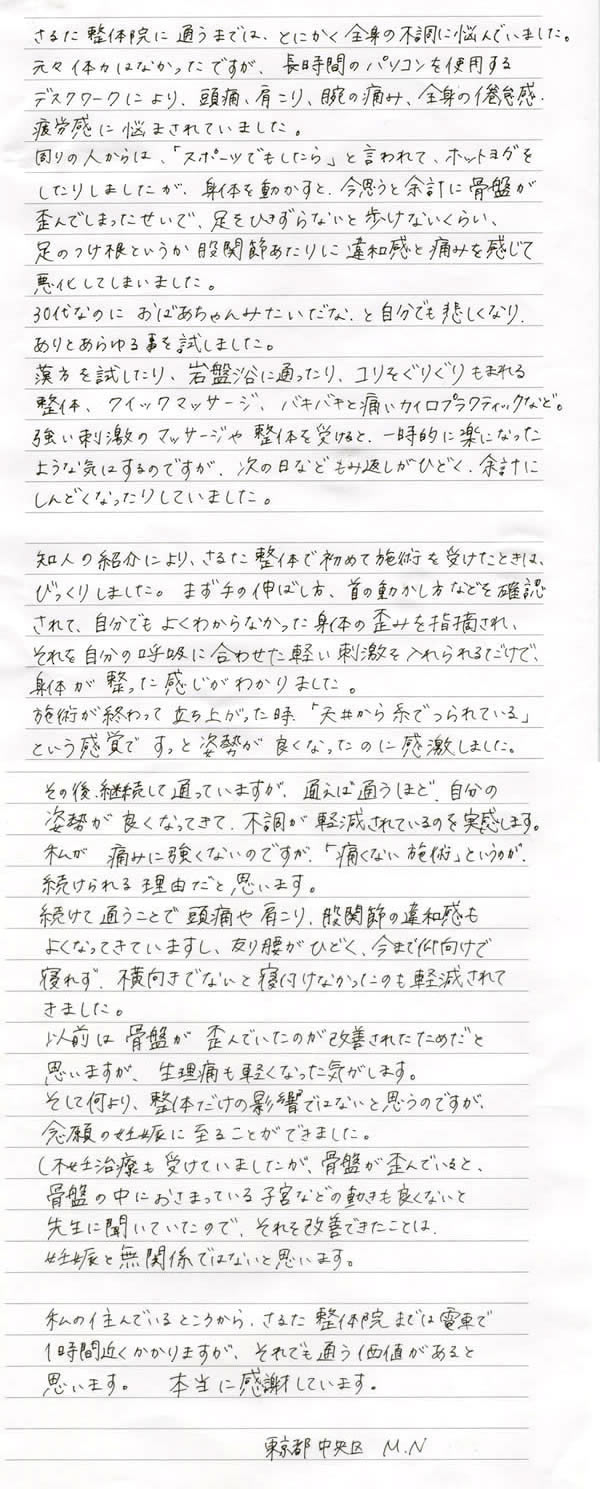 さるた整体院に通うまでは、とにかく全身の不調に悩んでいました。
元々体力はなかったですが、長時間のパソコンを使用する
デスクワークにより、頭痛、肩こり、腕の痛み、全身の倦怠感、
疲労感に悩まされていました。
周りの人からは、「スポーツでもしたら」と言われて、ホットヨガを
したりしましたが、身体を動かすと、今思うと余計に骨盤が
歪んでしまったせいで、足をひきずらないと歩けないくらい、
足のつけ根というか股関節あたりに違和感と痛みを感じて
悪化してしまいました。
30代なのに おばあちゃんみたいだな、と自分でも悲しくなり、
ありとあらゆる事を試しました。
漢方を試したり、岩盤浴に通ったり、コリをぐりぐりもまれる
整体、クイックマッサージ、バキバキと痛いカイロプラクティックなど。
強い刺激のマッサージや整体を受けると、一時的に楽になった
ような気はするのですが、次の日などもみ返しがひどく、余計に
しんどくなったりしていました。
知人の紹介により、さるた整体で初めて施術を受けたときは、
びっくりしました。まず手の伸ばし方、首の動かし方などを確認
されて、自分でもよくわからなかった身体の歪みを指摘され、
それを自分の呼吸に合わせた軽い刺激を入れられるだけで、
身体が整った感じがわかりました。
施術が終わって立ち上がった時、「天井から糸でつられている」
という感覚ですっと姿勢が良くなったのに感激しました。
その後、継続して通っていますが、通えば通うほど、自分の
姿勢が良くなってきて、不調が軽減されているのを実感します。
私が痛みに強くないのですが、「痛くない施術」というのが、
続けられる理由だと思います。
続けて通うことで頭痛や肩こり、股関節の違和感も
よくなってきていますし、反り腰がひどく、今まで仰向けで
寝れず、横向きでないと寝付けなかったのも軽減されて
きました。
以前は骨盤が歪んでいたのが改善されたためだと
思いますが、生理痛も軽くなった気がします。
そして何より、整体だけの影響ではないと思うのですが、
念願の妊娠に至ることができました。
(不妊治療も受けていましたが、骨盤が歪んでいると、
骨盤の中におさまっている子宮などの動きも良くないと
先生に聞いていたので、それを改善できたことは、
妊娠と無関係ではないと思います。
私の住んでいるところから、さるた整体院までは電車で
1時間近くかかりますが、それでも通う価値があると
思います。 本当に感謝しています。
東京都中央区 M.N